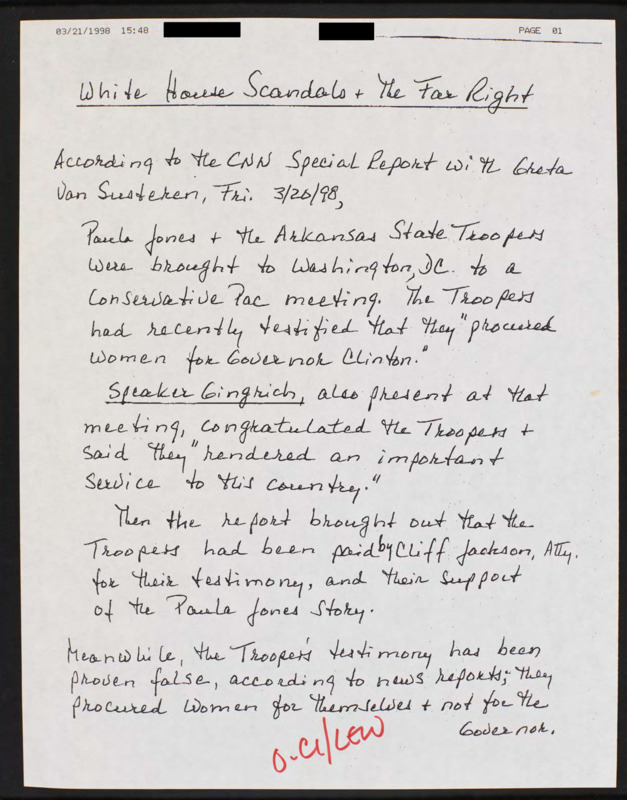 03/21/1998 15:48 PAGE 01
White House Scandals + the Far Right
According to the CNN Special Report with Greta
Van Susteren, Fri. 3/20/98,
Paula Jones + the Arkansas State Troopers
were brought to Washington, DC. to a
Conservative Pac meeting. The Troopers
had recently testified that they "procured
women for Governor Clinton."
Speaker Gingrich, also present at that
meeting, congratulated the Troopers +
said they "rendered an important
service to this country."
Then the report brought out that the
Troopers had been paid by Cliff Jackson, Atty.
for their testimony, and their support
of the Paula Jones Story.
Meanwhile, the Trooper's testimony has been
proven false, according to news reports; they
procured women for themselves + not for the
Governor.
O-Cl/LEW